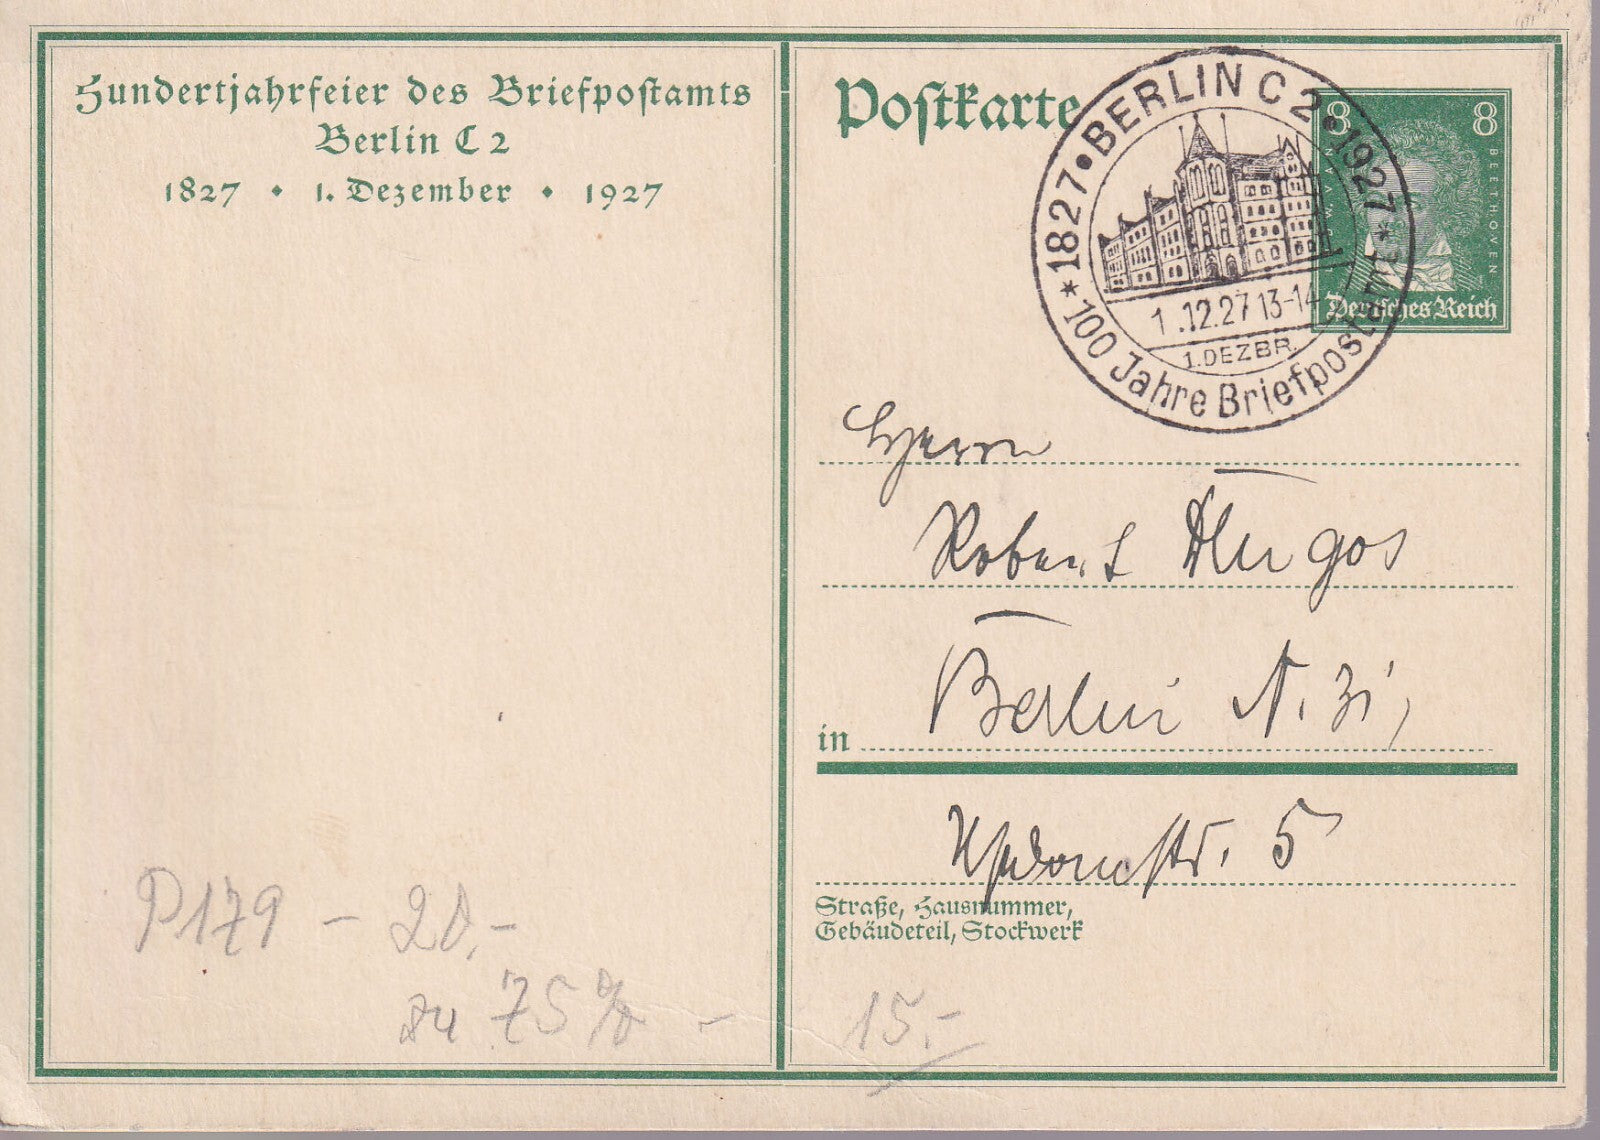 Hundertjahrfeier des Briefpostamts
Berlin C 2
1827 • 1. Dezember • 1927
Postkarte
* 1827 • BERLIN C 2 • 1927 *
1.12.27 13-14
1. DEZBR.
100 Jahre Briefpost
8 8
BEETHOVEN
Deutsches Reich
Herrn
Robert Dlugos
in Berlin N. 31,
Usedomstr. 5
Straße, Hausnummer,
Gebäudeteil, Stockwerk
P179 - 20,-
zu 75% - 15.-